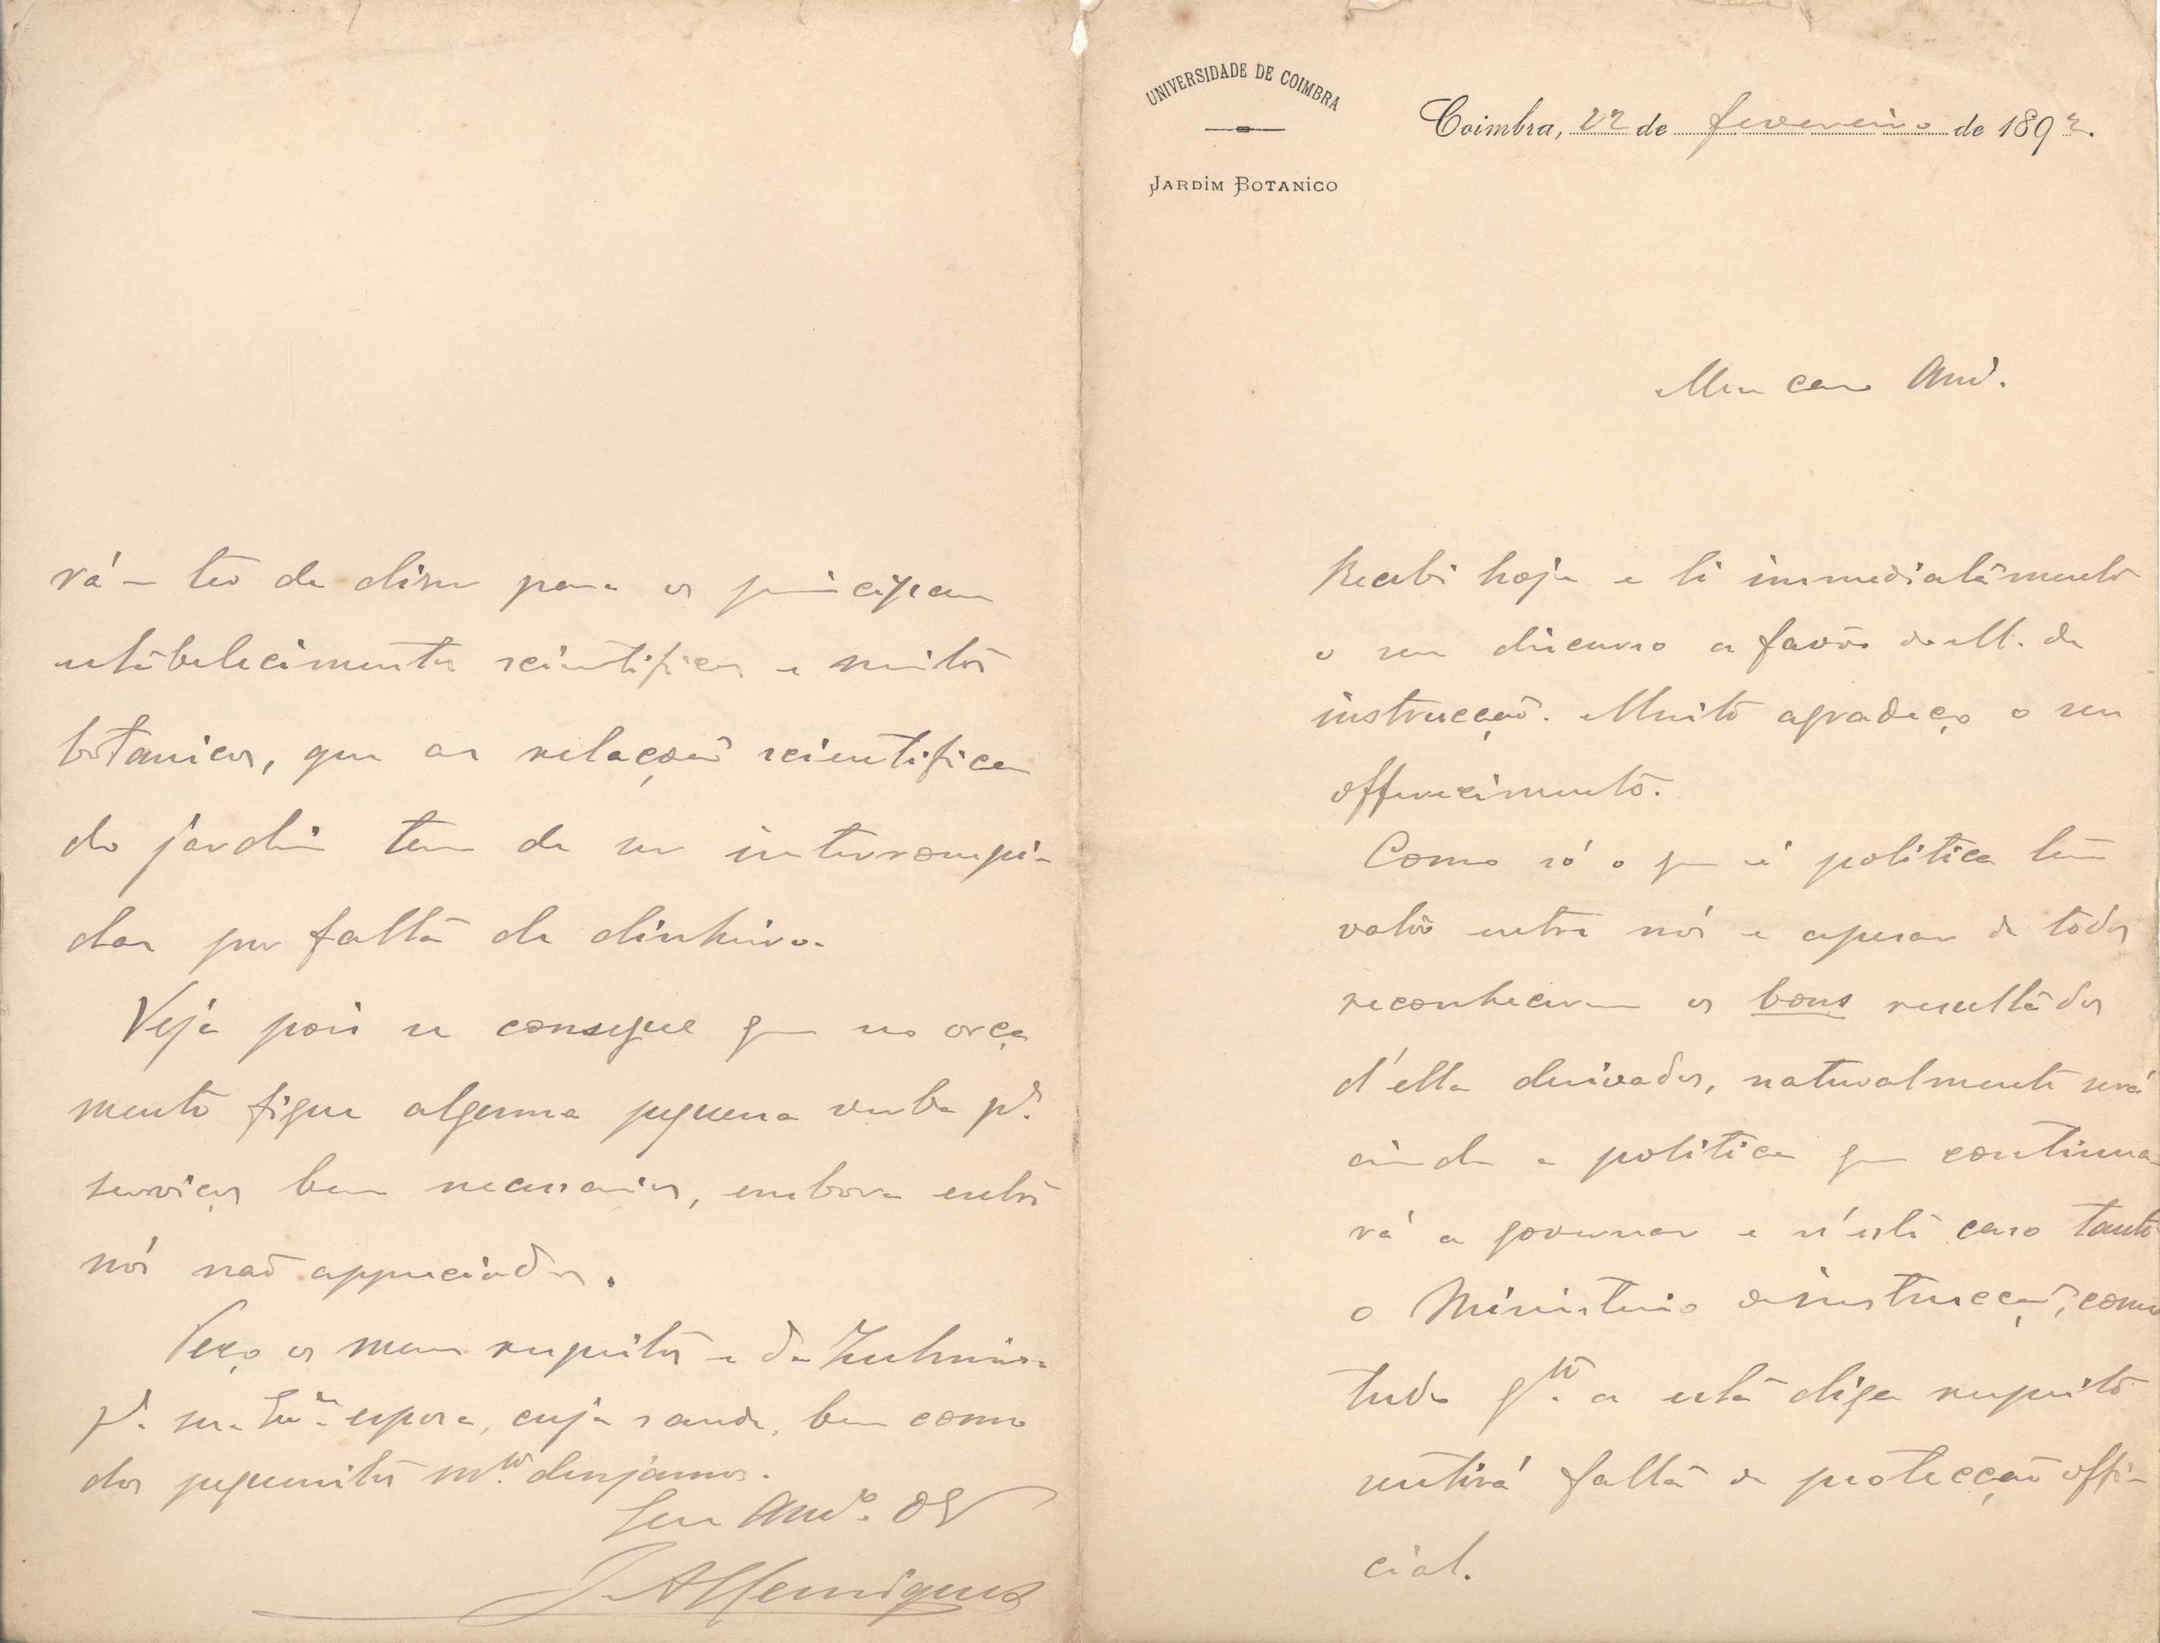 UNIVERSIDADE DE COIMBRA
JARDIM BOTANICO
Coimbra, 22 de fevereiro de 1892.
Meu caro Amº.
Recebi hoje e li immediatamente
o seu discurso a favor do M. de
instrucção. Muito agradeço o seu
offerecimento.
Como só o que é politica tem
valor entre nós e apesar de todos
reconhecerem os bons resultados
d'ella derivados, naturalmente será
ainda a politica que continua-
rá a governar e n'este caso tanto
o Ministerio da instrucção, como
tudo qto. a esta diga respeito
sentirá falta de protecção offi-
cial.
rá - ter de dizer para os principaes
estabelecimentos scientificos e muitos
botanicos, que as relações scientificas
do jardim tem de ser interrompi-
das por falta de dinheiro.
Veja pois se consegue que no orça
mento figure alguma pequena verba pª.
serviços bem necessarios, embora entre
nós não appreciados.
Peço os meus respeitos e da Zulmira
pª. sua Exma esposa, cuja saude, bem como
dos pequenitos mto. desejamos.
Seu Amº. Ob
J. A. Henriques